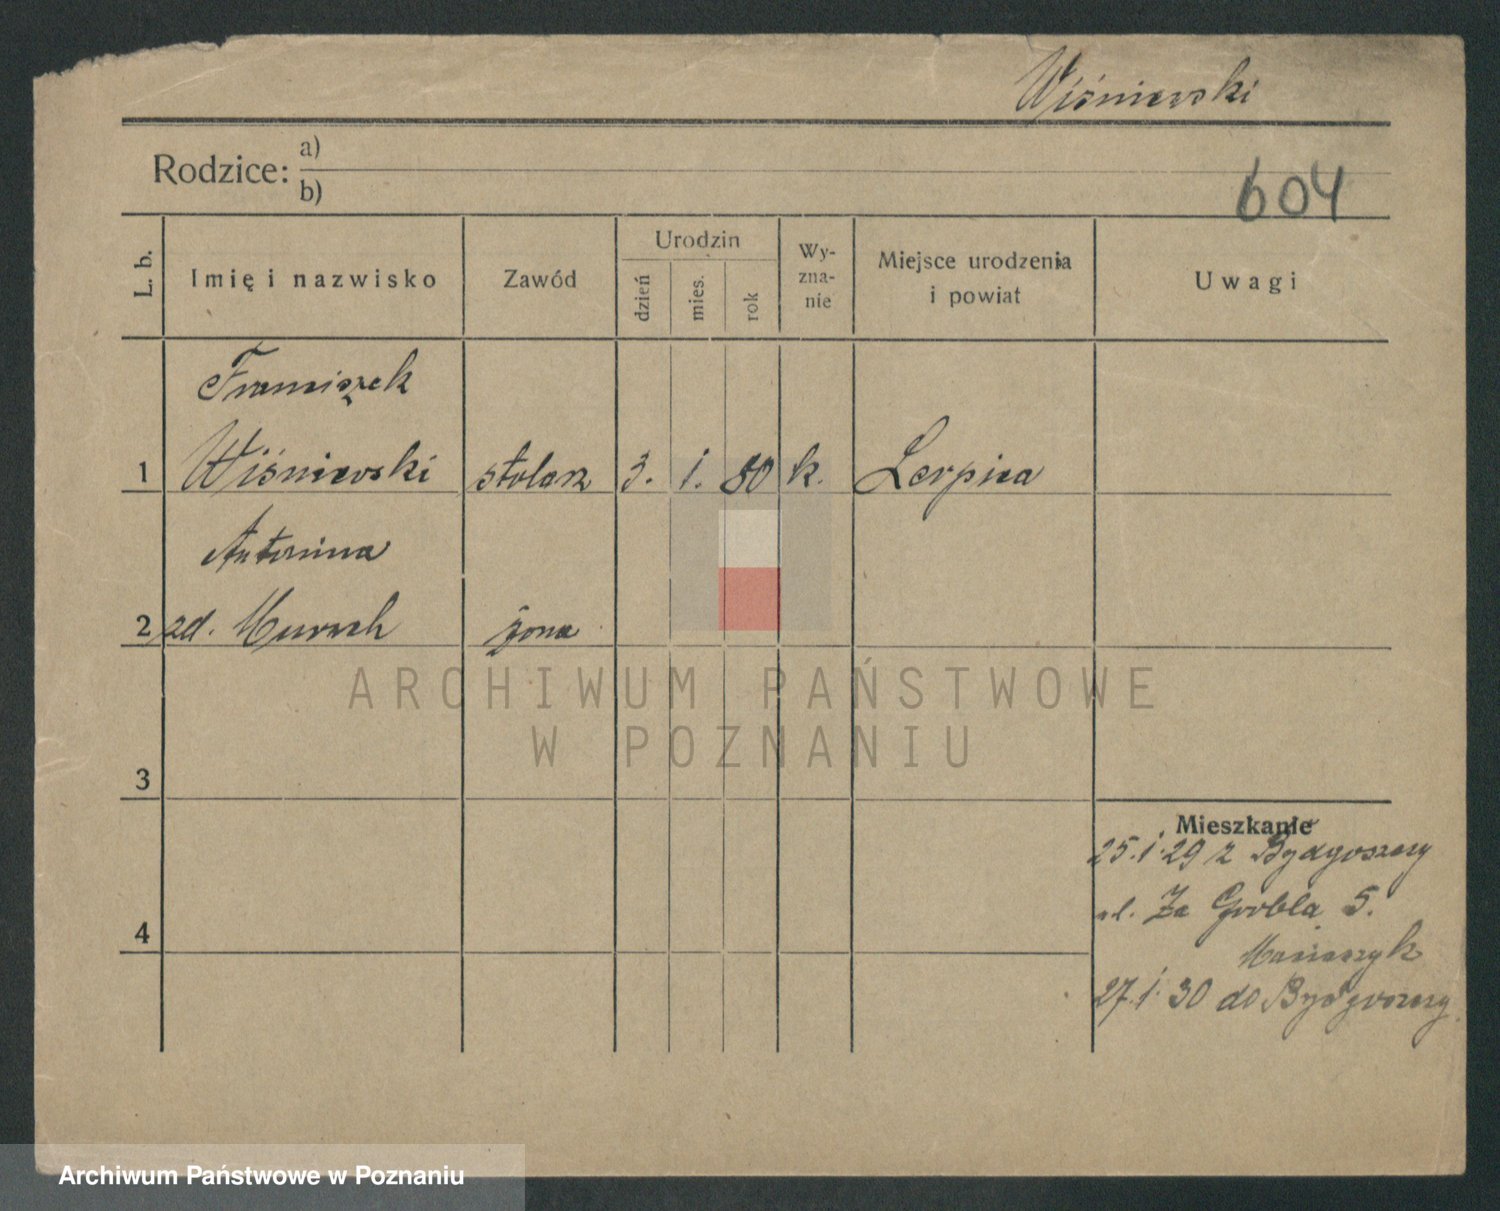 Wiśniewski
Rodzice: a)
b)
604
L. b.
Imię i nazwisko
Zawód
Urodzin
dzień
mies.
rok
Wy-
zna-
nie
Miejsce urodzenia
i powiat
Uwagi
Franciszek
1 Wiśniewski stolarz 3. 1. 80 k.
Antonina
2 zd. żona
ARCHIWUM PAŃSTWOWE
W POZNANIU
3
Mieszkanie
25.1.29 z Bydgoszczy
ul. Za Groblą 5.
4
27.1.30 do Bydgoszczy
Archiwum Państwowe w Poznaniu